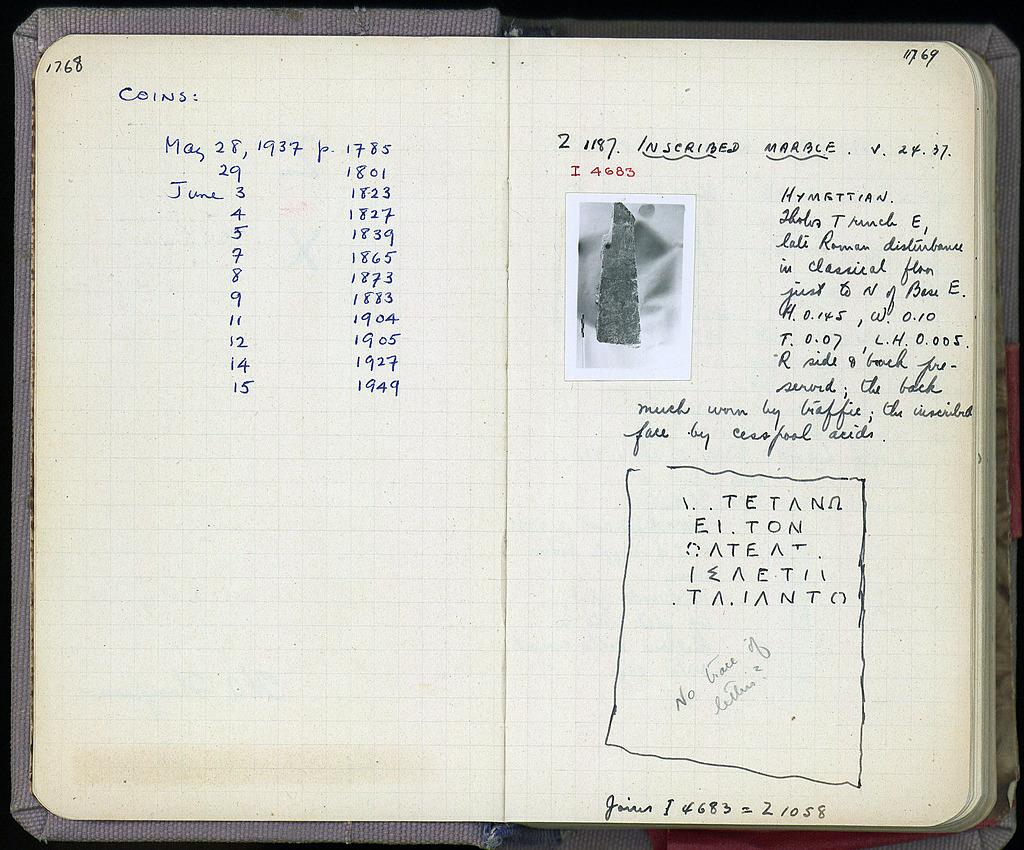 1768
COINS:
May 28, 1937 p. 1785
29 1801
June 3 1823
4 1827
5 1839
7 1865
8 1873
9 1883
11 1904
12 1905
14 1927
15 1949
1769
Z 1187. INSCRIBED MARBLE. V. 24.37.
I 4683
HYMETTIAN.
Tholos Trench E,
late Roman disturbance
in classical floor
just to N of Base E.
H. 0.145, W. 0.10
T. 0.07, L.H. 0.005.
R side & back pre-
served; the back
much worn by traffic; the inscribed
face by cesspool acids.
\..ΤΕΤΛΝΩ
ΕΙ.ΤΟΝ
ΩΛΤΕΛΤ.
ΙΣΛΕΤΙΙ
.ΤΛ.ΙΛΝΤΟ
No trace of
letters?
Joins I 4683 = Z 1058